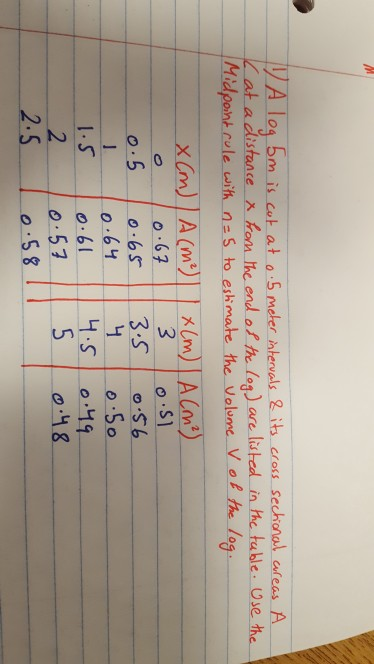 1) A log 5m is cut at 0.5 meter intervals & its cross sectional areas A
(at a distance x from the end of the log) are listed in the table. Use the
Midpoint rule with n=5 to estimate the Volume V of the log.
x(m) | A(m²) || x(m) | A(m²)
0 0.67 3 0.51
0.5 0.65 3.5 0.56
1 0.64 4 0.50
1.5 0.61 4.5 0.49
2 0.57 5 0.48
2.5 0.58